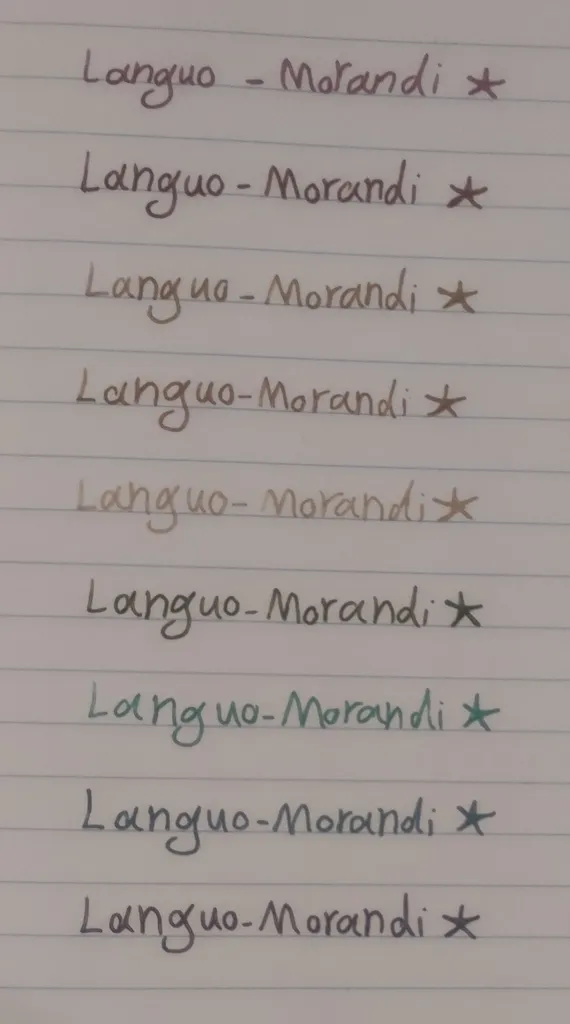 Languo - Morandi ★
Languo - Morandi ★
Languo - Morandi ★
Languo-Morandi ★
Languo- Morandi ★
Languo-Morandi ★
Languo-Morandi ★
Languo-Morandi ★
Languo-Morandi ★